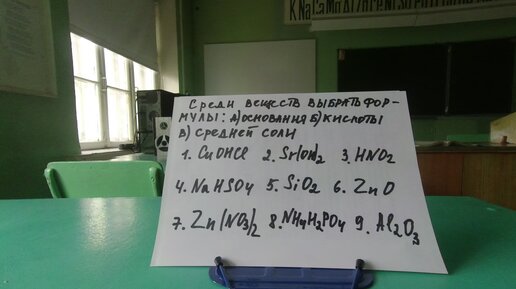 K Na Ca Mg Al Zn Fe Ni Sn Pb
Среди веществ выбрать фор-
мулы: а) основания б) кислоты
в) средней соли
1. CuOHCl 2. Sr(OH)2 3. HNO2
4. NaHSO4 5. SiO2 6. ZnO
7. Zn(NO3)2 8. NH4H2PO4 9. Al2O3